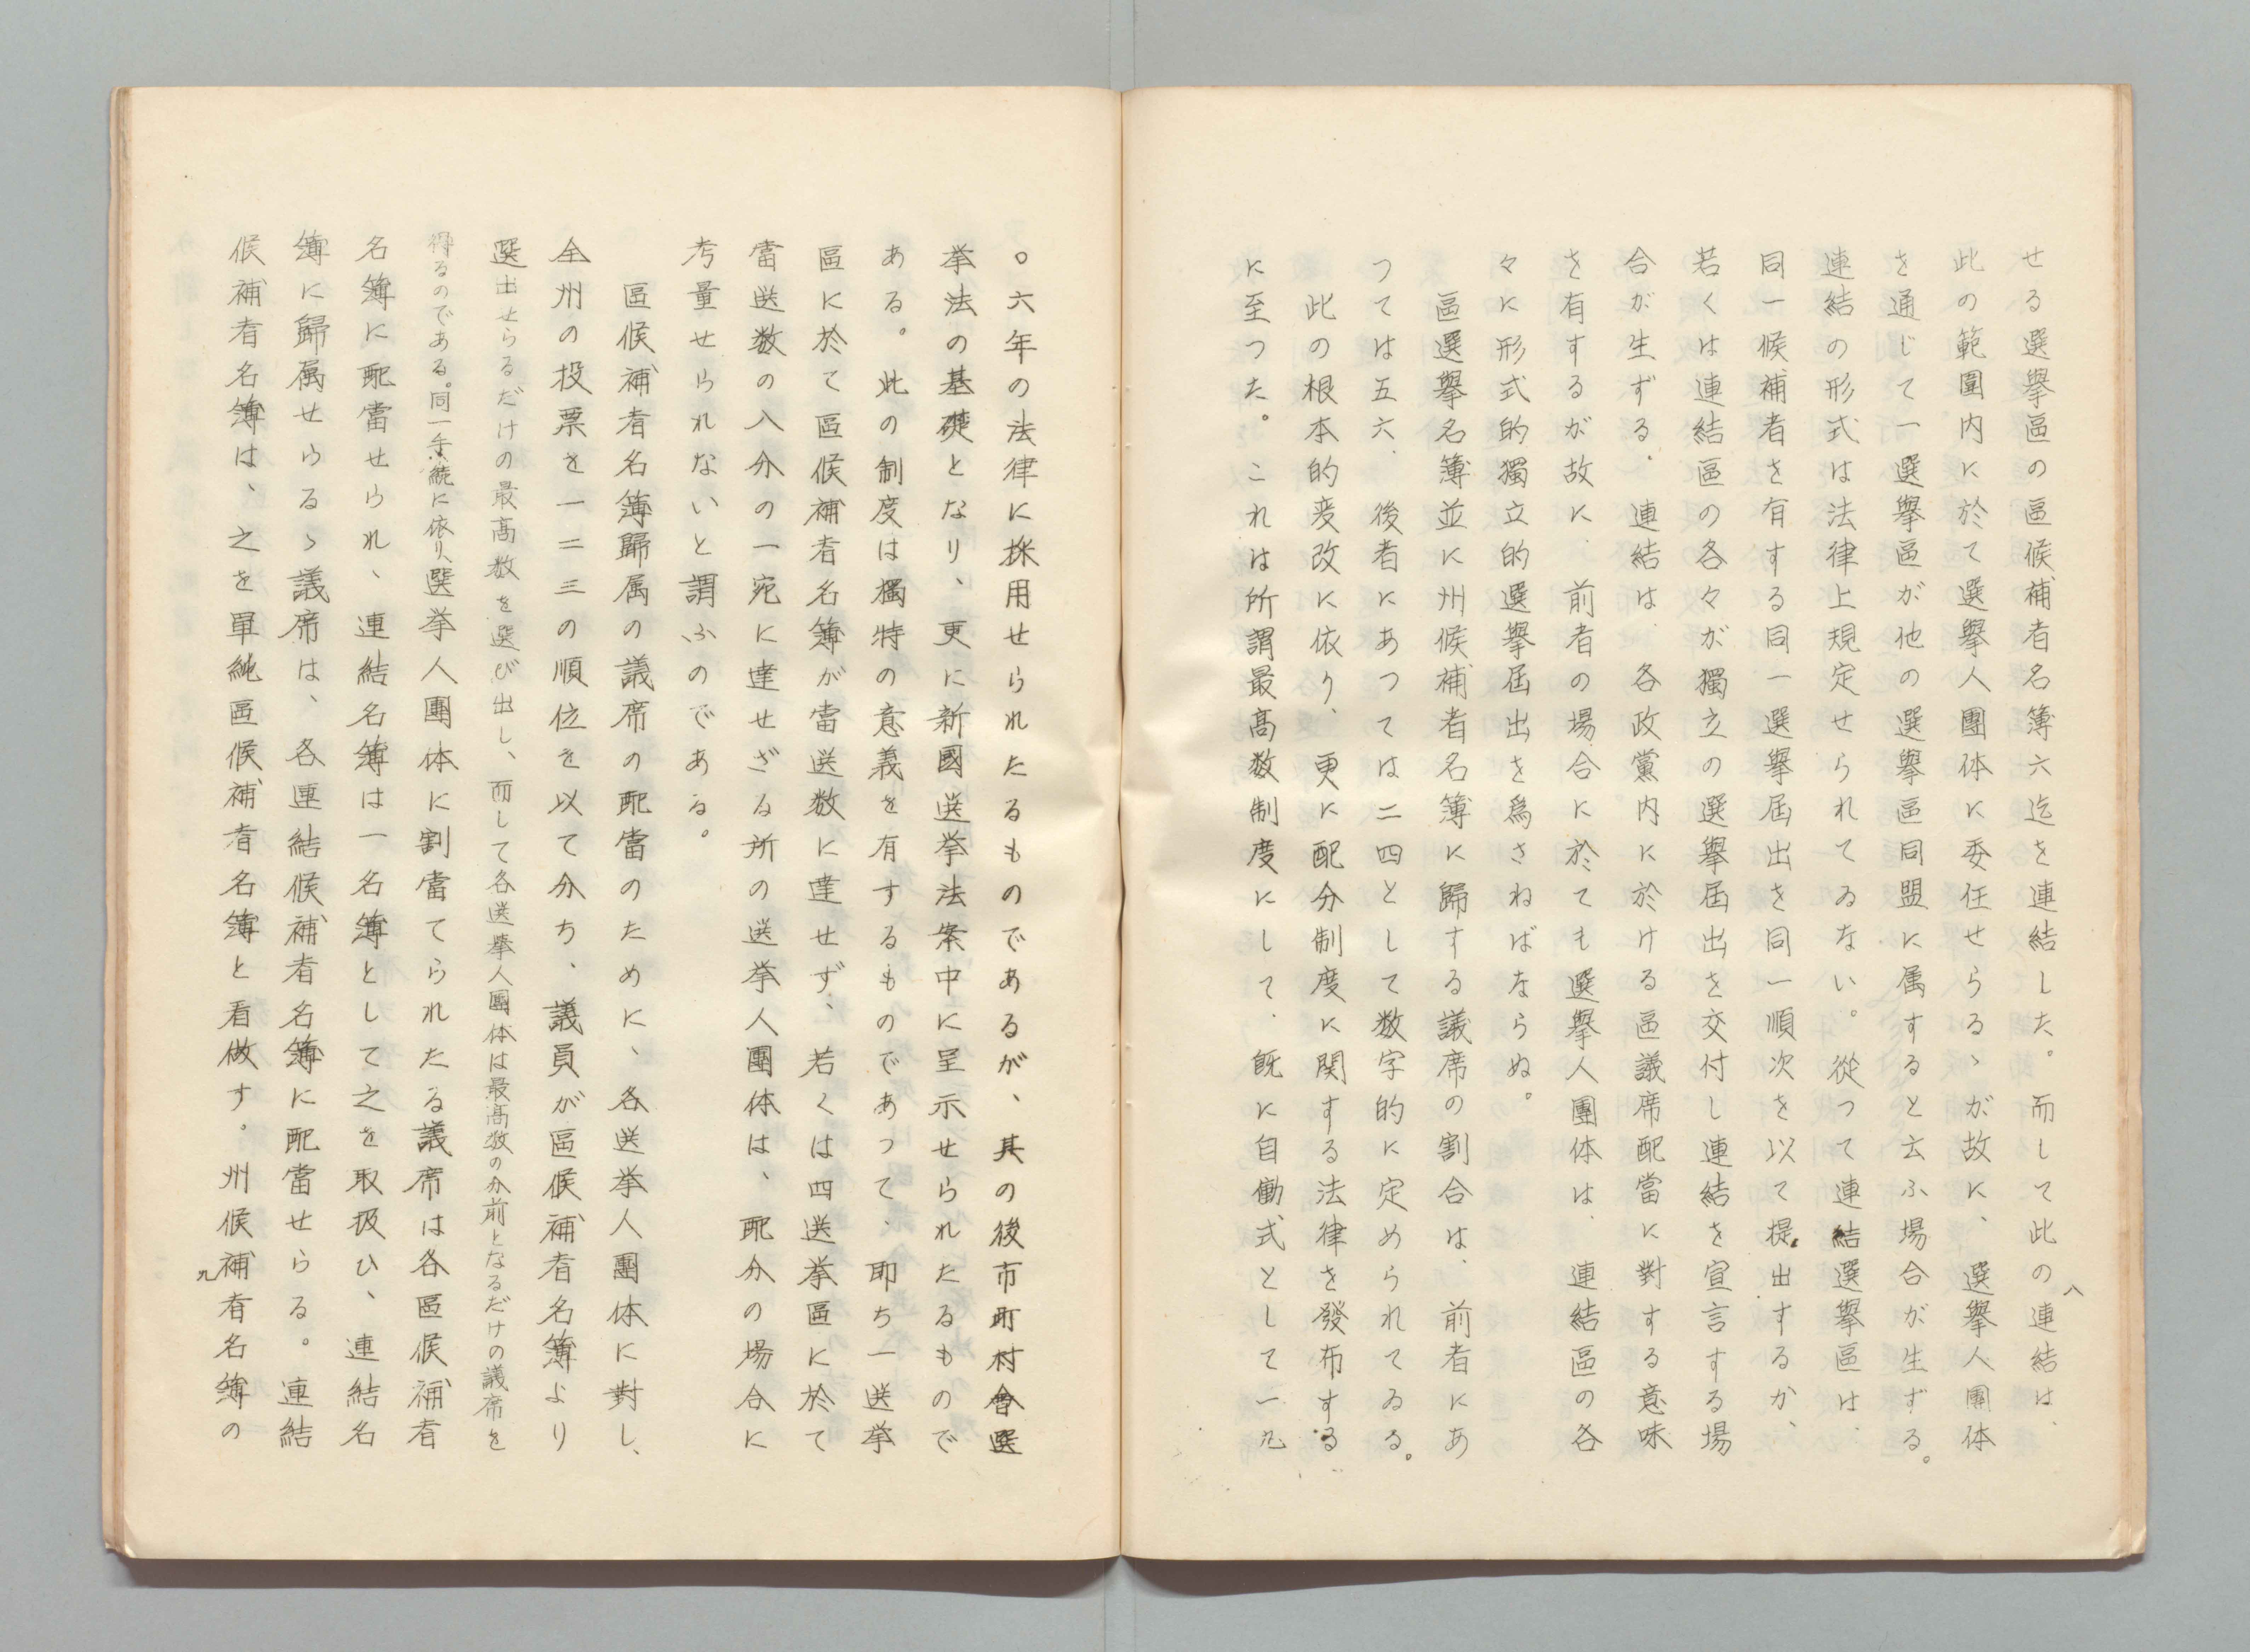 せる選擧區の區候補者名簿六迄を連結した。而して此の連結は、
此の範圍内に於て選擧人團体に委任せらるゝが故に、選擧人團体
を通じて一選擧區が他の選擧區同盟に属すると云ふ場合が生ずる。
連結の形式は法律上規定せられてゐない。從つて連結選擧區は、
同一候補者を有する同一選擧屆出を同一順次を以て提出するか、
若くは連結區の各々が獨立の選擧屆出を交付し連結を宣言する場
合が生ずる、連結は、各政黨内に於ける區議席配當に對する意味
を有するが故に、前者の場合に於ても選擧人團体は、連結區の各
々に形式的獨立的選擧屆出を爲さねばならぬ。
區選擧名簿並に州候補者名簿に歸する議席の割合は、前者にあ
つては五六、後者にあつては二四として数字的に定められてゐる。
此の根本的変改に依り、更に配分制度に関する法律を發布する
に至つた。これは所謂最高数制度にして、既に自働式として一九
八
〇六年の法律に採用せられたるものであるが、其の後市町村会選
挙法の基礎となり、更に新國選挙法案中に呈示せられたるもので
ある。此の制度は獨特の意義を有するものであつて、即ち一選挙
區に於て區候補者名簿が當选数に達せず、若くは四选挙區に於て
當选数の八分の一宛に達せざる所の选挙人團体は、配分の場合に
考量せられないと謂ふのである。
區候補者名簿歸属の議席の配當のために、各选挙人團体に對し、
全州の投票を一二三の順位を以て分ち、議員が區候補者名簿より
選出せらるだけの最高数を选び出し、而して各选挙人團体は最高数の分前となるだけの議席を
得るのである。同一手続に依り、選挙人團体に割當てられたる議席は各區候補者
名簿に配當せられ、連結名簿は一名簿として之を取扱ひ、連結名
簿に歸属せらるゝ議席は、各連結候補者名簿に配當せらる。連結
候補者名簿は、之を單純區候補者名簿と看做す。州候補者名簿の
九